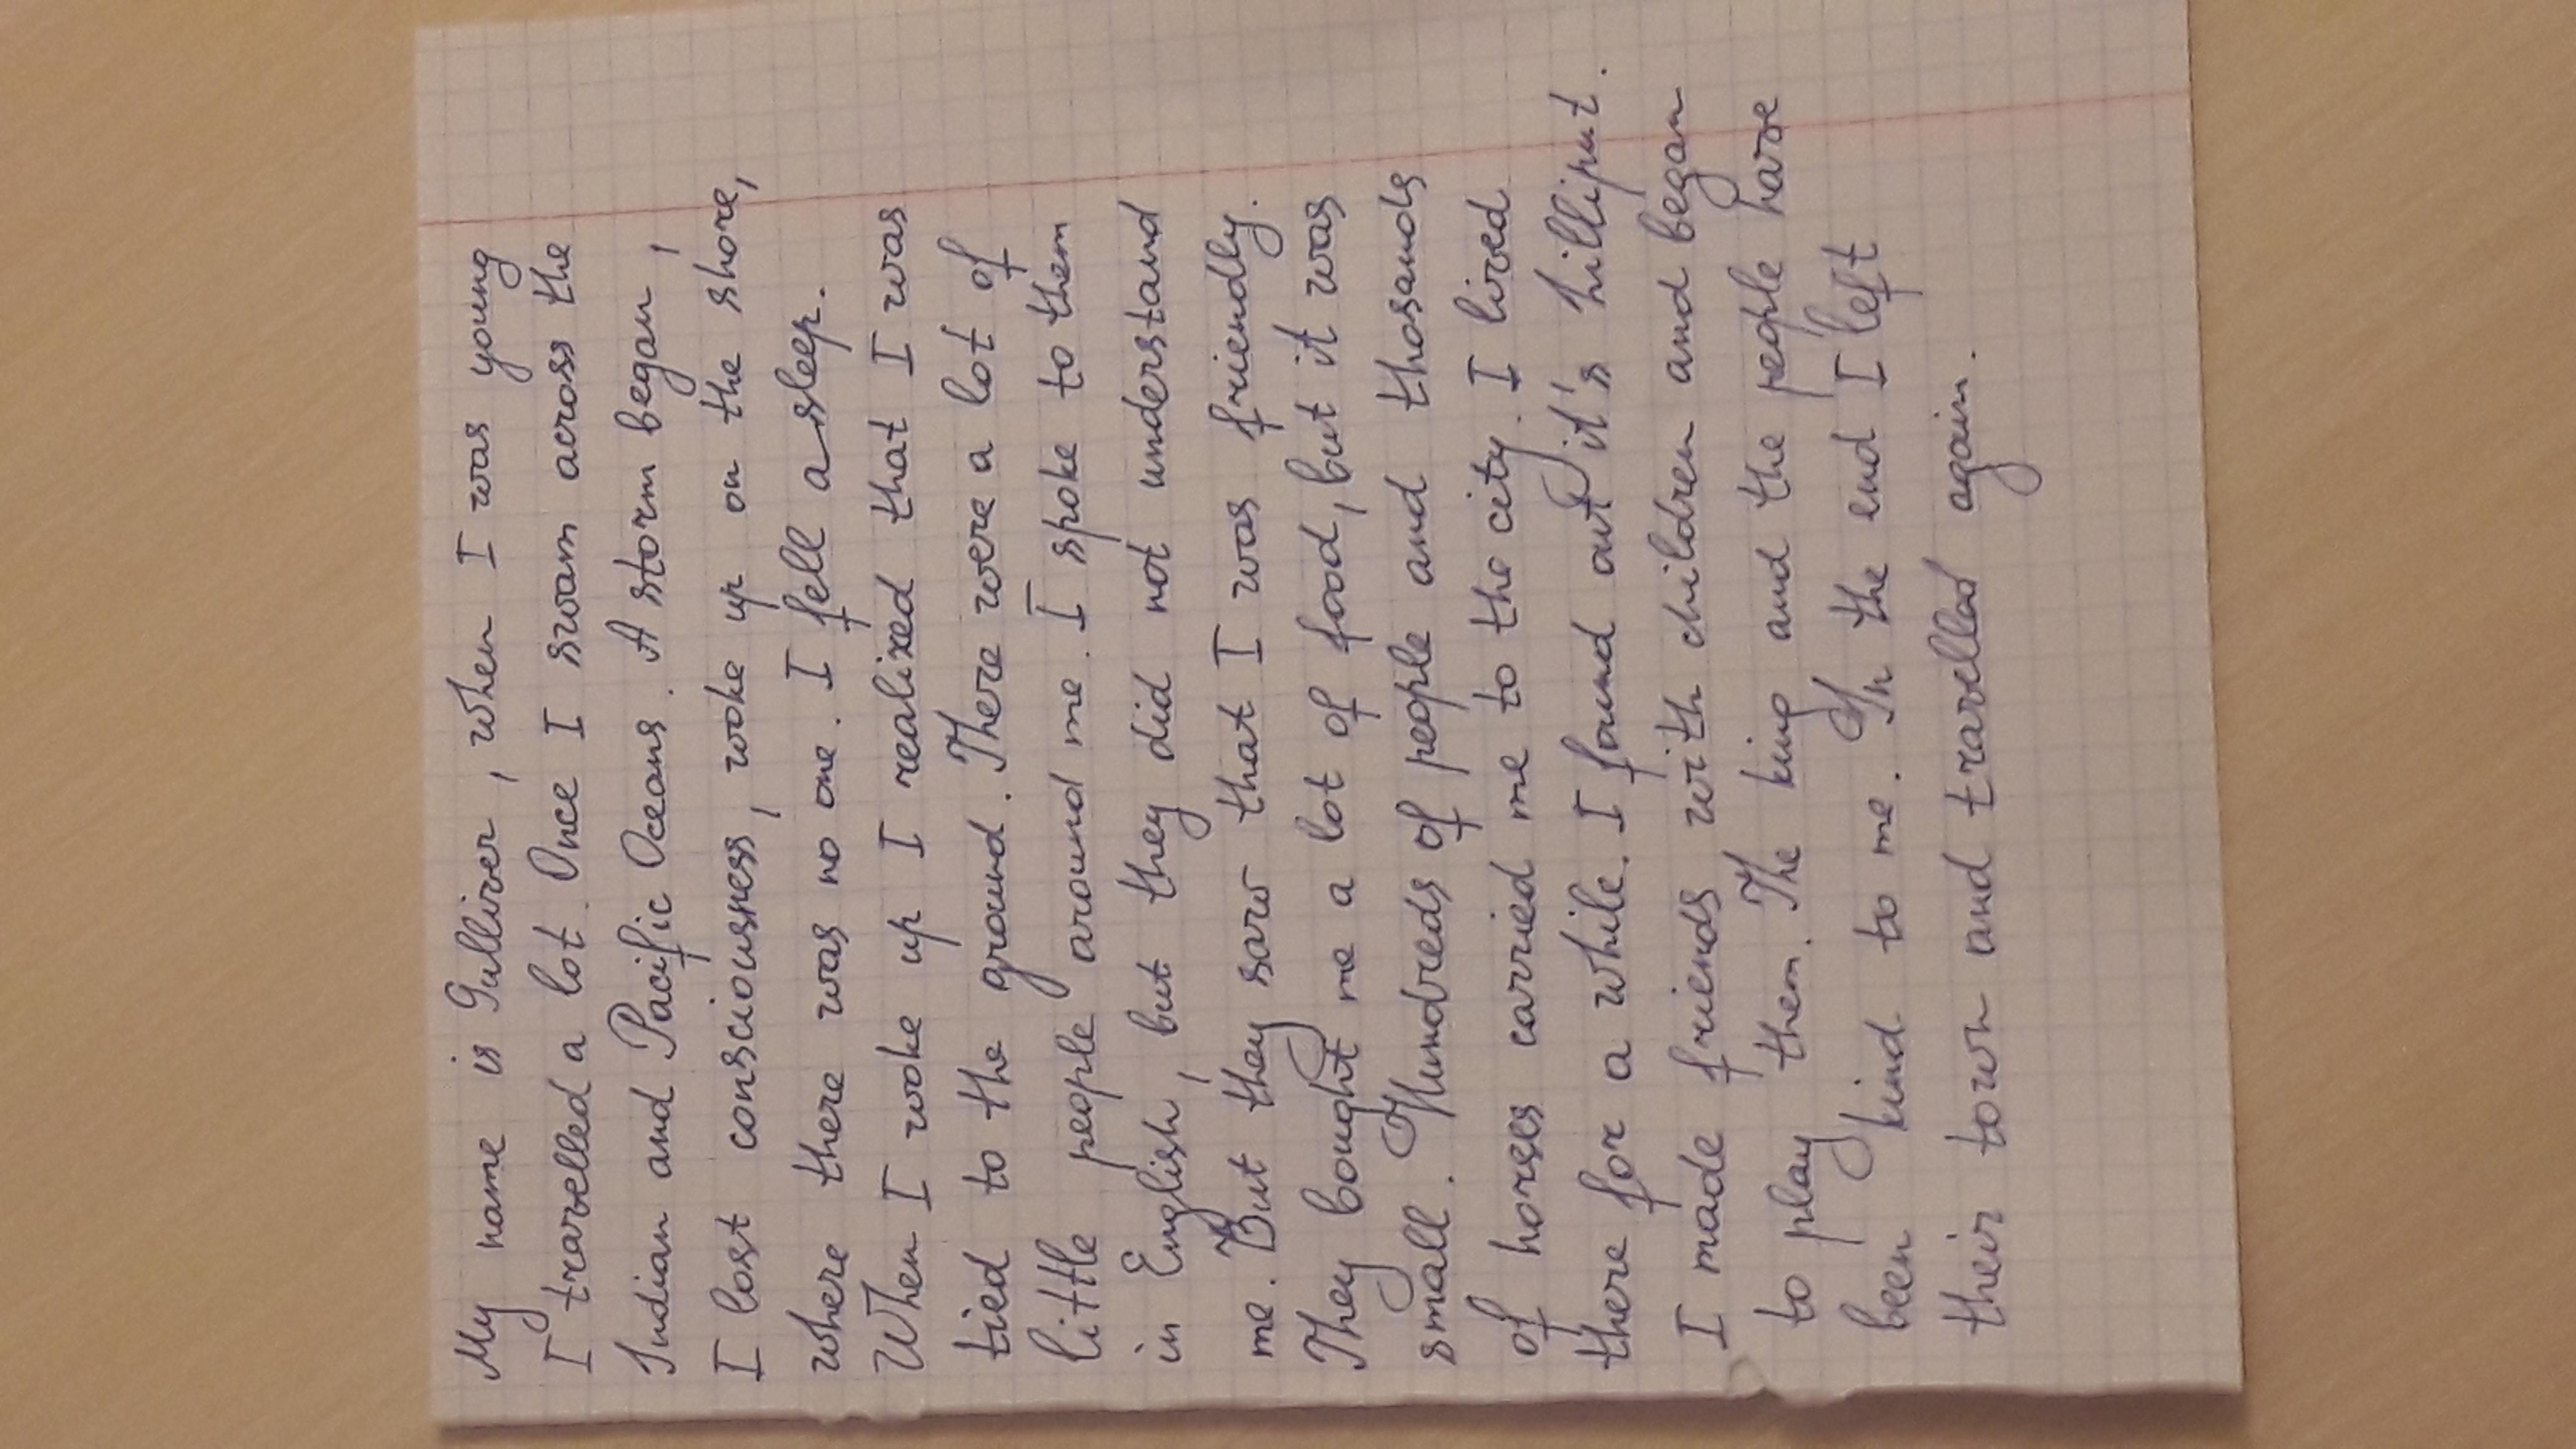 My name is Gulliver, when I was young
I travelled a lot. Once I swam across the
Indian and Pacific Oceans. A storm began,
I lost consciousness, woke up on the shore,
where there was no one. I fell asleep.
When I woke up I realized that I was
tied to the ground. There were a lot of
little people around me. I spoke to them
in English, but they did not understand
me. But they saw that I was friendly.
They bought me a lot of food, but it was
small. Hundreds of people and thosands
of horses carried me to the city. I lived
there for a while. I found out it's hilliput.
I made friends with children and began
to play them. The king and the people have
been kind to me. In the end I left
their town and travelled again.